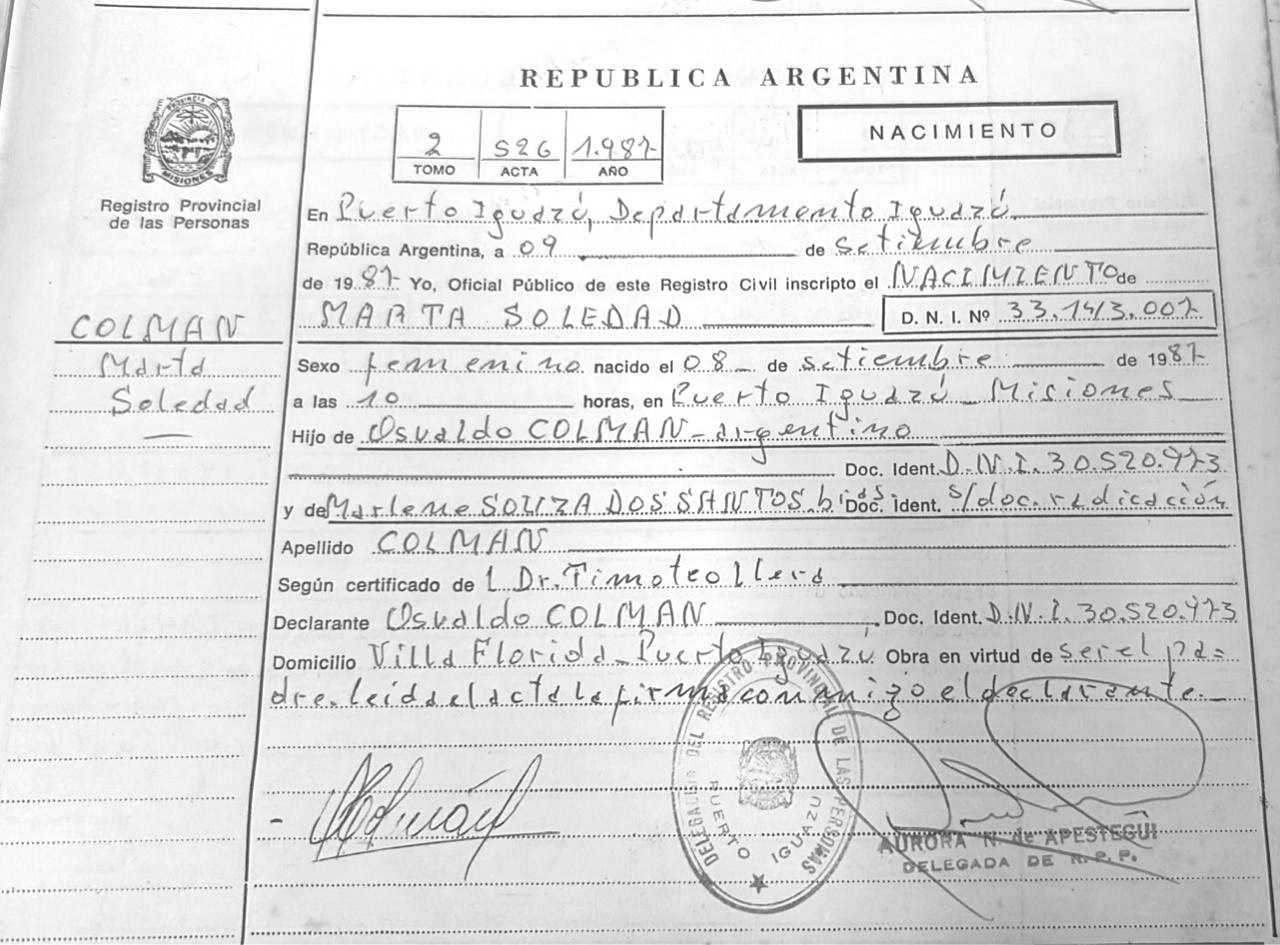 REPUBLICA ARGENTINA
PROVINCIA D MISIONES
Registro Provincial
de las Personas
2 526 1.987
TOMO ACTA AÑO
NACIMIENTO
En Puerto Iguazú, Departamento Iguazú
República Argentina, a 09 de setiembre
de 1987 Yo, Oficial Público de este Registro Civil inscripto el NACIMIENTO de
MARTA SOLEDAD D. N. I. Nº 33.143.007
COLMAN
Marta
Soledad
Sexo femenino nacido el 08 de setiembre de 1987
a las 10 horas, en Puerto Iguazú - Misiones
Hijo de Osvaldo COLMAN - argentino
Doc. Ident. D.N.I. 30.520.973
y de Marlene SOUZA DOS SANTOS. Doc. Ident. s/doc. radicación
Apellido COLMAN
Según certificado de l Dr. Timoteo Llera
Declarante Osvaldo COLMAN Doc. Ident. D.N.I. 30.520.973
Domicilio Villa Florida - Puerto Iguazú Obra en virtud de ser el pa=
dre. leida el acta la firma conmigo el declarante.
DELEGACION DEL REGISTRO PROVINCIAL DE LAS PERSONAS
PUERTO IGUAZU
AURORA N. de APESTEGUI
DELEGADA DE R. P. P.